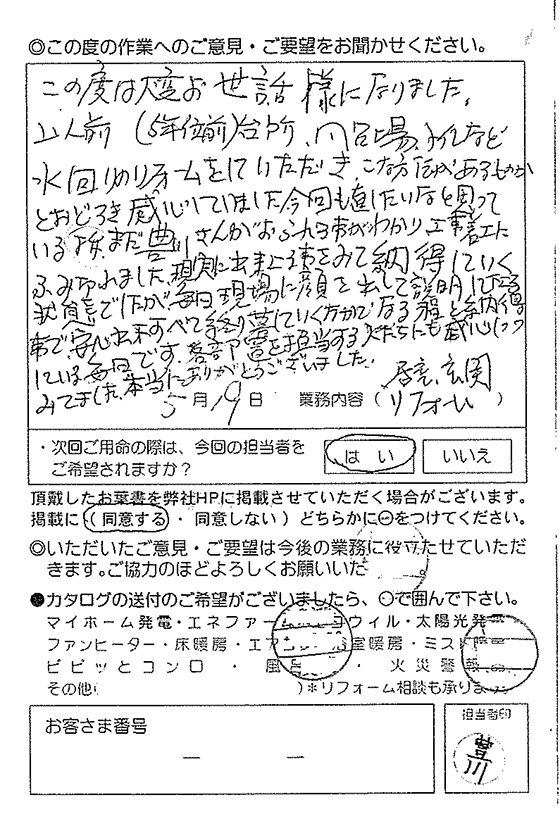 ◎この度の作業へのご意見・ご要望をお聞かせください。
この度は大変お世話様になりました。
人前(5年位前)台所、など
水回りのリフォームをしていただき、こな方法があるものか
とおどろき感心していました。今回も直したいなと思って
いる まだ豊川さんがおられる事がわかり工事着工に
ふみきれました。現実に出来上る事をみて納得していく
状態でしたが、毎日現場に顔を出して説明して下さる
事で安心出来すべて終り落していく方々でなる程と納得
している毎日です。各部署を担当する人たちにも感心しつつ
みてました。本当にありがとうございました。
5月19日 業務内容( 居室、玄関 リフォーム )
・次回ご用命の際は、今回の担当者を ご希望されますか? はい いいえ
頂戴したお葉書を弊社HPに掲載させていただく場合がございます。
掲載に(同意する ・ 同意しない)どちらかに○をつけてください。
◎いただいたご意見・ご要望は今後の業務に役立たせていただ
きます。ご協力のほどよろしくお願いいた
●カタログの送付のご希望がございましたら、○で囲んで下さい。
マイホーム発電・エネファー コウィル・太陽光発
ファンヒーター・床暖房・エア 室暖房・ミスト
ピピッとコンロ ・ 風 ・ 火災警報
その他( )*リフォーム相談も承りま
お客さま番号
― ―
担当者印
豊川